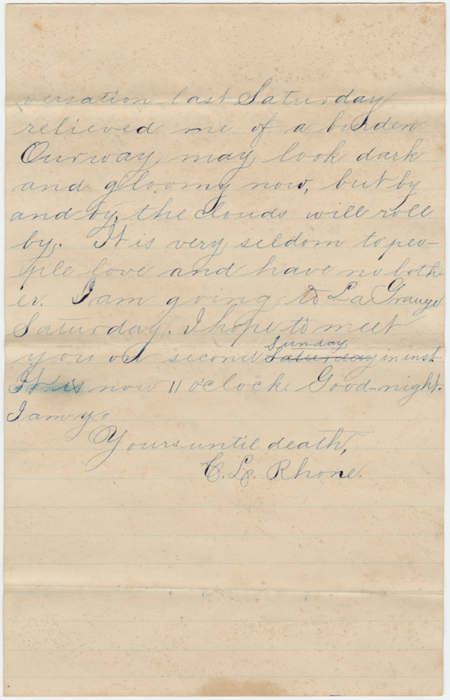 versation last Saturday
relieved me of a burden.
Our way may look dark
and gloomy now, but by
and by the clouds will roll
by. It is very seldom to peo-
ple love and have no both-
er. I am going to La Grange
Saturday. I hope to meet
you on second Saturday Sunday in inst.
It is now 11 oclock. Good-night.
I am y.
Yours until death,
C. L. Rhone.